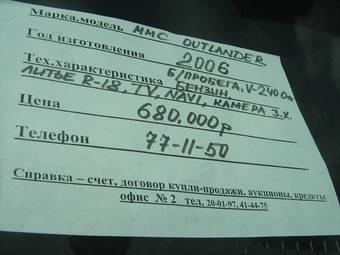 Марка,модель ММС OUTLANDER
Год изготовления 2006
Тех.характеристика Б/ПРОБЕГА, V-2400
БЕНЗИН,
ЛИТЬЕ R-18, TV, NAVI, КАМЕРА З.Х.
Цена 680.000р
Телефон 77-11-50
Справка – счет, договор купли-продажи, аукционы, кредиты
офис № 2 тел. 20-01-97, 41-44-75